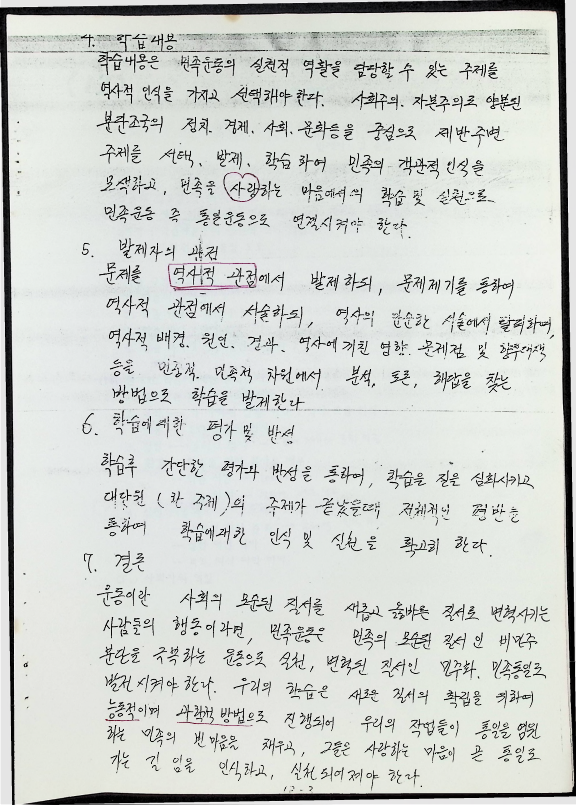 4. 학습내용
학습내용은 민족운동의 실천적 역활을 담당할 수 있는 주제를
역사적 인식을 가지고 선택해야 한다. 사회주의. 자본주의로 양분된
분단조국의 정치. 경제. 사회. 문화등을 중심으로 제반주변
주제를 선택, 발제, 학습하여 민족의 객관적 인식을
모색하고, 민족을 사랑하는 마음에서의 학습 및 실천으로
민족운동 즉 통일운동으로 연결시켜야 한다.
5. 발제자의 관점
문제를 역사적 관점에서 발제하되, 문제제기를 통하여
역사적 관점에서 서술하되, 역사의 단순한 서술에서 탈피하여,
역사적 배경. 원인. 결과. 역사에 끼친 영향. 문제점 및 향후대책
등을 민중적. 민족적 차원에서 분석, 토론, 해답을 찾는
방법으로 학습을 발제한다
6. 학습에 대한 평가 및 반성
학습후 간단한 평가와 반성을 통하여, 학습을 심화시키고
대단원 (한 주제)의 주제가 끝났을때 전체적인 평반을
통하여 학습에 대한 인식 및 실천을 확고히 한다.
7. 결론
운동이란 사회의 모순된 질서를 새롭고 올바른 질서로 변혁시키는
사람들의 행동이라면, 민족운동은 민족의 모순된 질서인 비민주
분단을 극복하는 운동으로 실천, 변혁된 질서인 민주화. 민족통일로
발전시켜야 한다. 우리의 학습은 새로운 질서의 확립을 위하여
능동적이며 과학적 방법으로 진행되어 우리의 작업들이 통일을 염원
하는 민족의 빈 마음을 채우고, 그들은 사랑하는 마음이 곧 통일로
가는 길 임을 인식하고, 실천되어져야 한다.